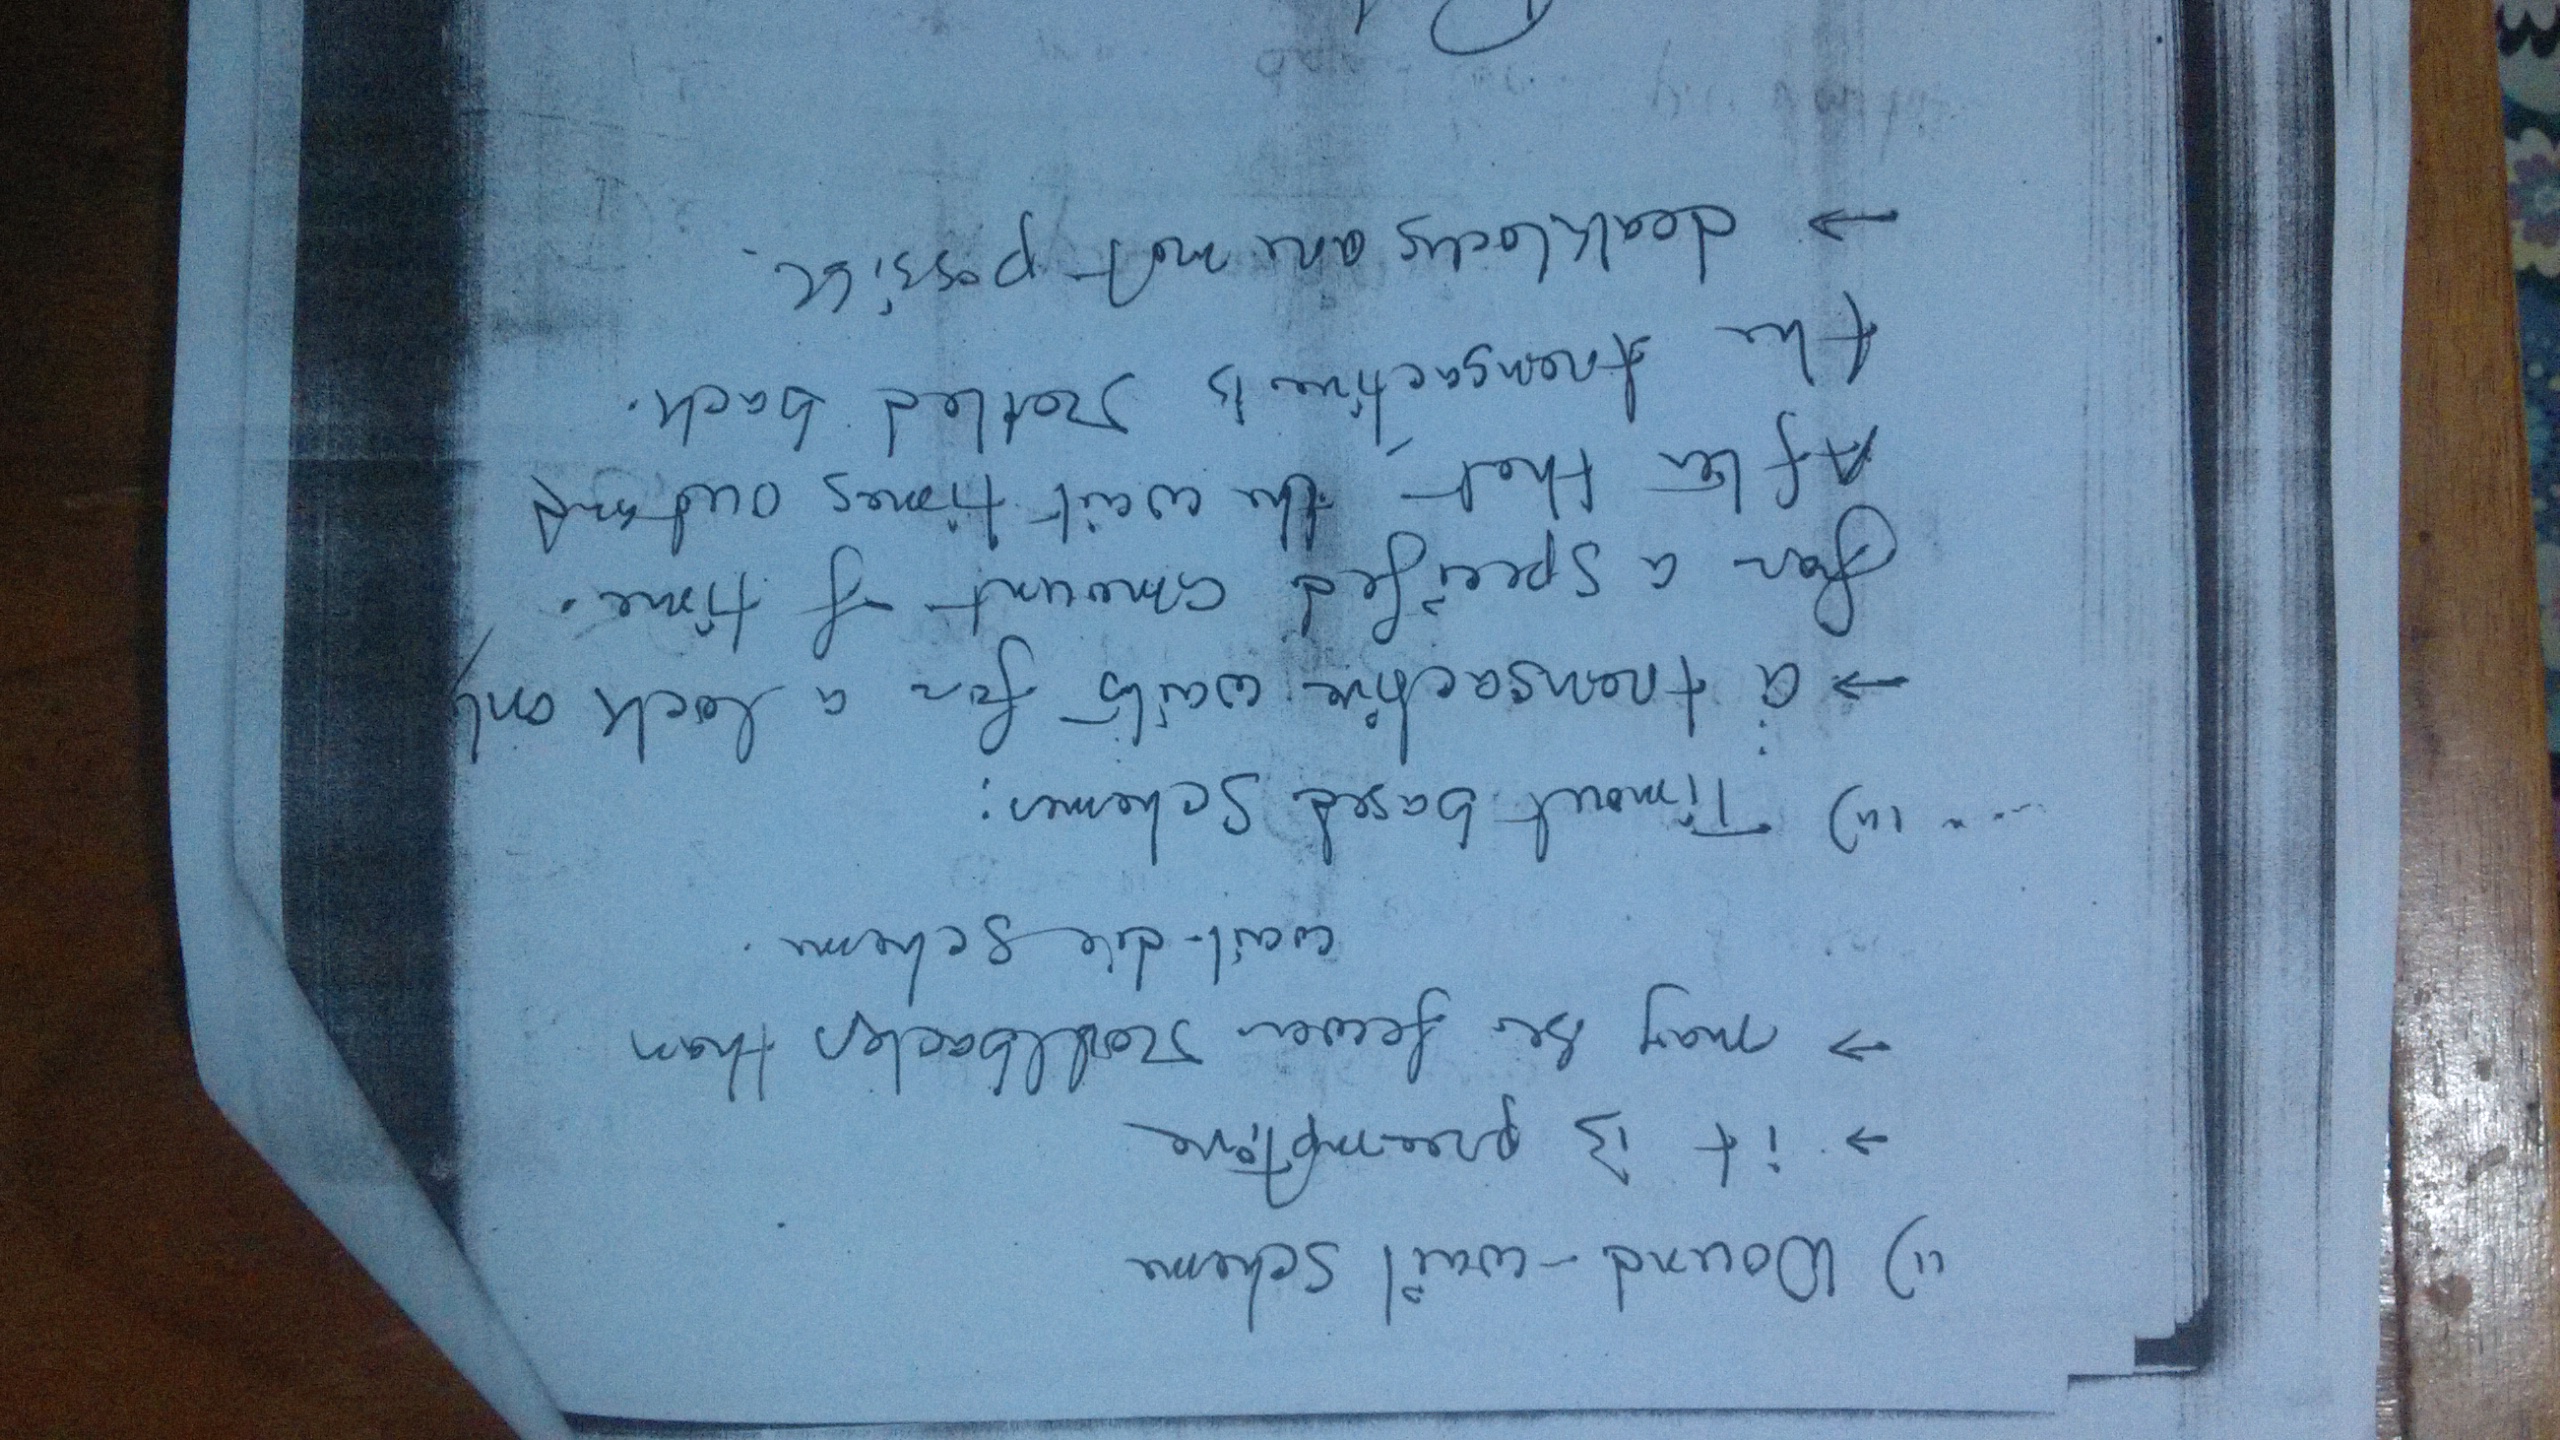 ii) Wound-wait scheme
→ it is preemptive
→ may be fewer rollbacks than
wait-die scheme.
iii) Timout based Scheme:
→ a transaction waits for a lock only
for a specified amount of time.
After that, the wait times out and
the transaction is rolled back.
→ deadlocks are not possible.